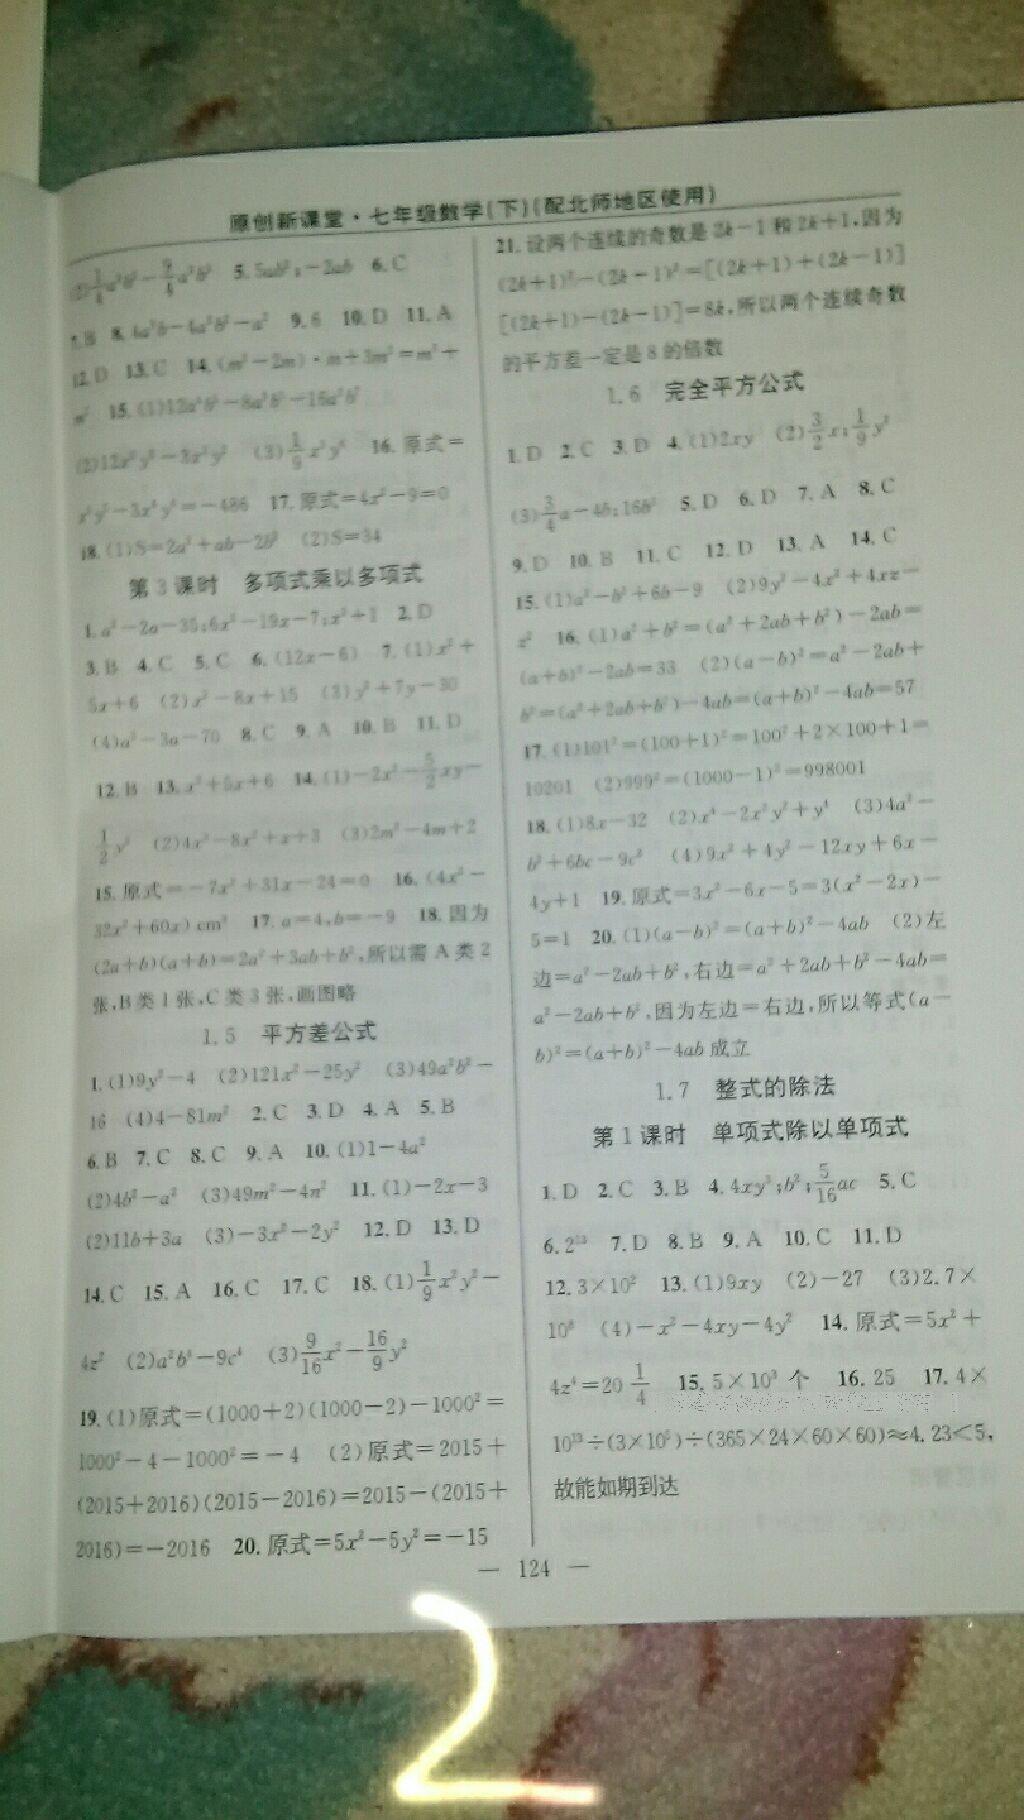 原创新课堂·七年级数学(下)(配北师地区使用)
5.5ab²;-2ab 6.C
8.4a³b-4a²b²-a² 9.6 10.D 11.A
12.D 13.C 14.(m²-2m)·m+3m²=m³+
m² 15.(1)
(3)1/9x²y⁴ 16.原式=
=-486 17.原式=4x²-9=0
18.(1)S=2a²+ab-2b² (2)S=34
第3课时 多项式乘以多项式
1.a²-2a-35;6x²-19x-7;x³+1 2.D
3.B 4.C 5.C 6.(12x-6) 7.(1)x²+
5x+6 (2)x²-8x+15 (3)y²+7y-30
(4)a²-3a-70 8.C 9.A 10.B 11.D
12.B 13.x²+5x+6 14.(1)-2x²-5/2xy-
1/2y² (2)4x³-8x²+x+3 (3)2m²-4m+2
15.原式=-7x²+31x-24=0 16.(4x³-
32x²+60x)cm³ 17.a=4,b=-9 18.因为
(2a+b)(a+b)=2a²+3ab+b²,所以需A类2
张,B类1张,C类3张,画图略
1.5 平方差公式
1.(1)9y²-4 (2)121x²-25y² (3)49a²b²-
16 (4)4-81m² 2.C 3.D 4.A 5.B
6.B 7.C 8.C 9.A 10.(1)1-4a²
(2)4b²-a² (3)49m²-4n² 11.(1)-2x-3
(2)11b+3a (3)-3x²-2y² 12.D 13.D
14.C 15.A 16.C 17.C 18.(1)1/9x²y²-
4z² (2) -9c⁴ (3)9/16x²-16/9y²
19.(1)原式=(1000+2)(1000-2)-1000²=
1000²-4-1000²=-4 (2)原式=2015+
(2015+2016)(2015-2016)=2015-(2015+
2016)=-2016 20.原式=5x²-5y²=-15
21.设两个连续的奇数是2k-1和2k+1,因为
(2k+1)²-(2k-1)²=[(2k+1)+(2k-1)]
[(2k+1)-(2k-1)]=8k,所以两个连续奇数
的平方差一定是8的倍数
1.6 完全平方公式
1.D 2.C 3.D 4.(1)2xy (2)3/2x;1/9y²
(3)3/4a-4b;16b² 5.D 6.D 7.A 8.C
9.D 10.B 11.C 12.D 13.A 14.C
15.(1)a²-b²+6b-9 (2)9y²-4x²+4xz-
z² 16.(1)a²+b²=(a²+2ab+b²)-2ab=
(a+b)²-2ab=33 (2)(a-b)²=a²-2ab+
b²=(a²+2ab+b²)-4ab=(a+b)²-4ab=57
17.(1)101²=(100+1)²=100²+2×100+1=
10201 (2)999²=(1000-1)²=998001
18.(1)8x-32 (2)x⁴-2x²y²+y⁴ (3)4a²-
b²+6bc-9c² (4)9x²+4y²-12xy+6x-
4y+1 19.原式=3x²-6x-5=3(x²-2x)-
5=1 20.(1)(a-b)²=(a+b)²-4ab (2)左
边=a²-2ab+b²,右边=a²+2ab+b²-4ab=
a²-2ab+b²,因为左边=右边,所以等式(a-
b)²=(a+b)²-4ab成立
1.7 整式的除法
第1课时 单项式除以单项式
1.D 2.C 3.B 4.4xy³;b²;5/16ac 5.C
6. 7.D 8.B 9.A 10.C 11.D
12.3×10² 13.(1)9xy (2)-27 (3)2.7×
10⁸ (4)-x²-4xy-4y² 14.原式=5x²+
4z⁴=20 1/4 15.5×10³个 16.25 17.4×
10¹³÷(3×10⁵)÷(365×24×60×60)≈4.23<5,
故能如期到达
— 124 —
2